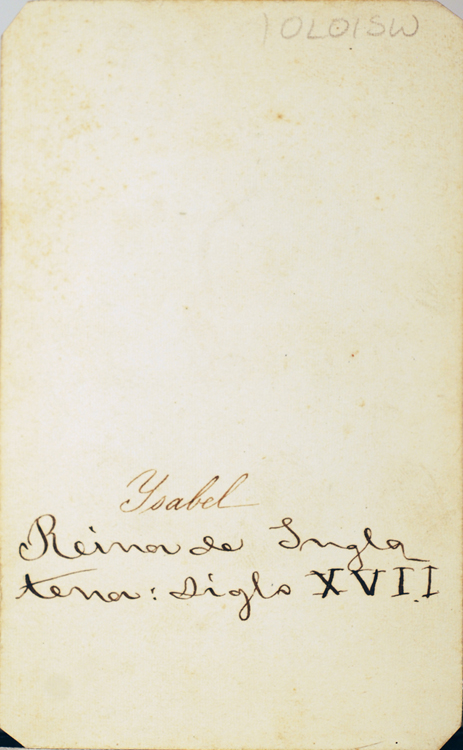 10L01SW
Ysabel
Reina de Ingla
terra: siglo XVII